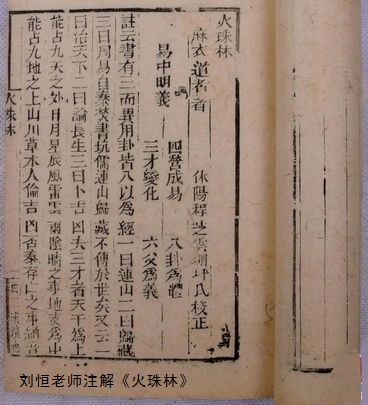 火珠林
麻衣道者著 休陽程芝雲坪氏校正
易中明義 四營成易 八卦為體
三才變化 六爻為義
註云書有三而異用卦皆八以為經一曰連山二曰歸藏
三曰周易自秦焚書坑儒連山歸藏不傳於世矣又云一
曰治天下二曰論長生三曰卜吉凶夫三才者天干為上
能占九天之外日月星辰風雷雲雨陰晴之事地支為中
能占九地之上山川草木人倫吉凶否泰存亡之事
火珠林
刘恒老师注解《火珠林》